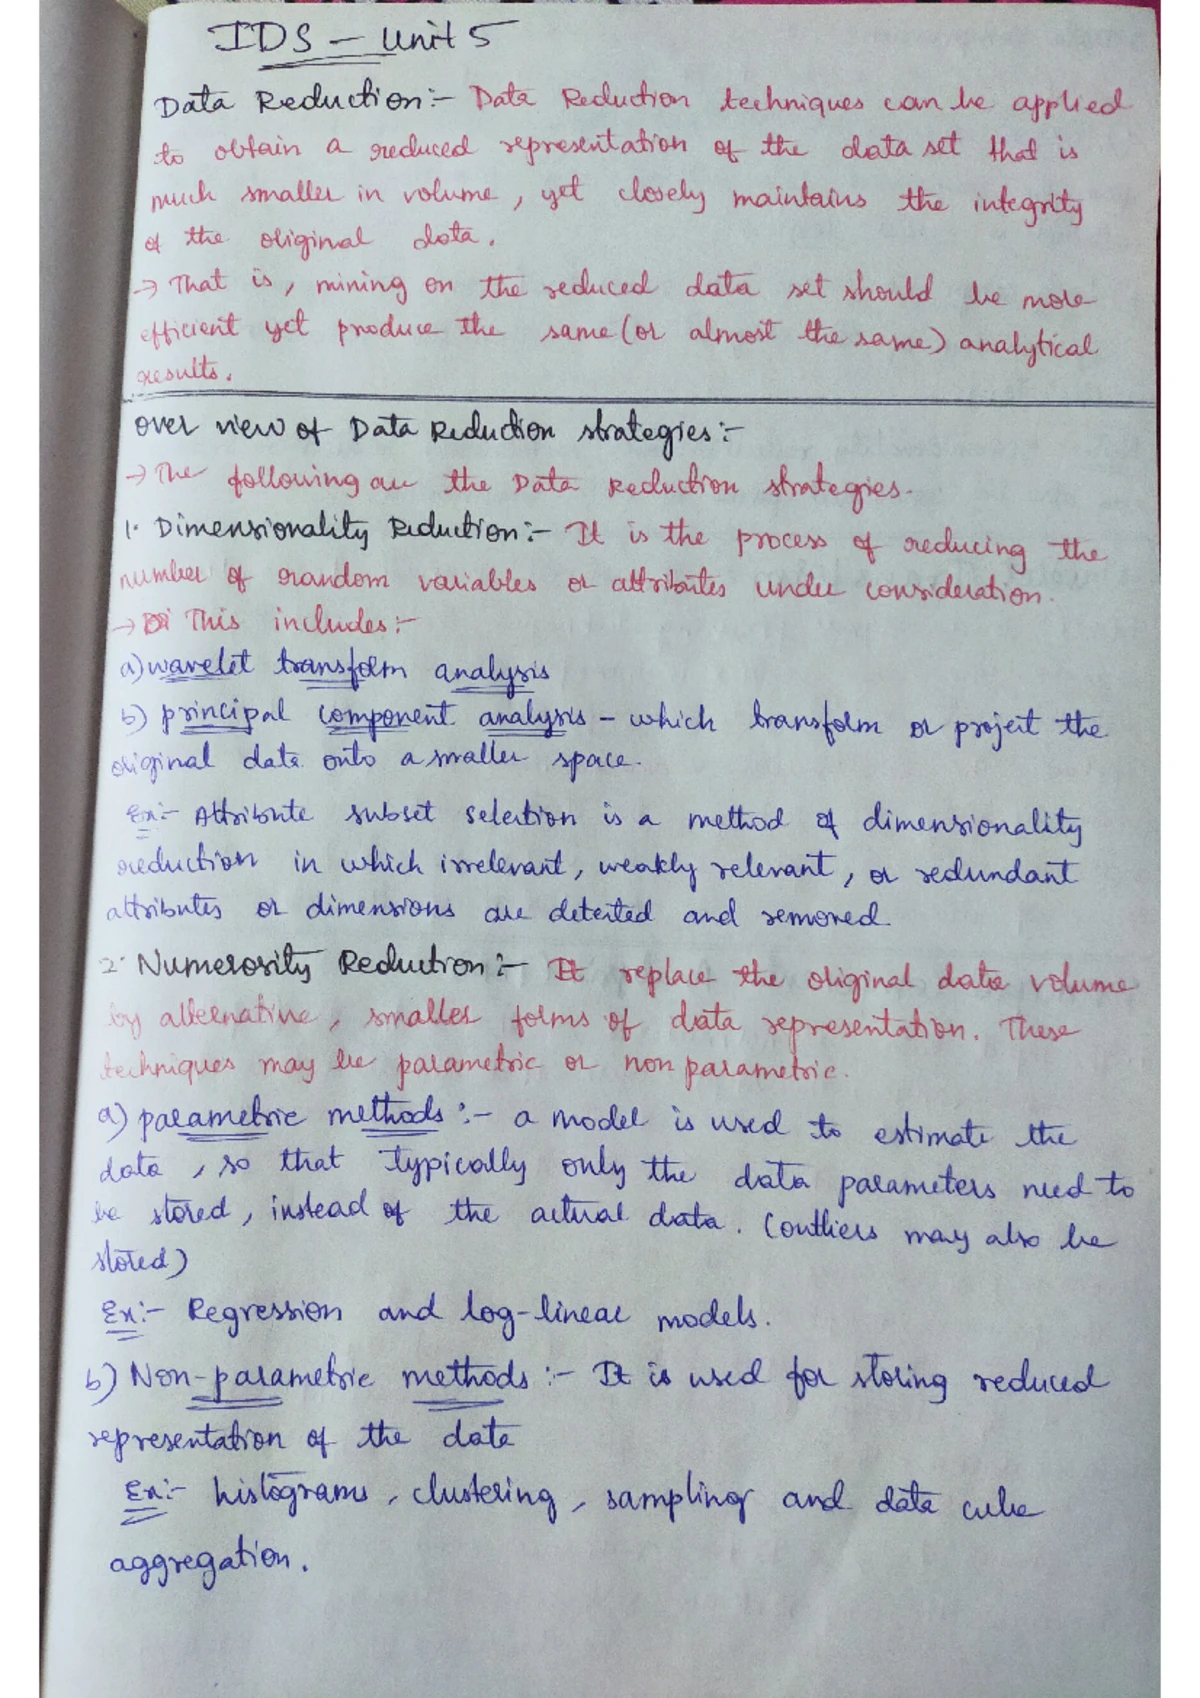 IDS - Unit 5
Data Reduction:- Data Reduction techniques can be applied
to obtain a reduced representation of the data set that is
much smaller in volume, yet closely maintains the integrity
of the original data.
→ That is, mining on the reduced data set should be more
efficient yet produce the same (or almost the same) analytical
results.
over view of Data Reduction strategies:-
→ The following are the Data Reduction strategies.
1. Dimensionality Reduction:- It is the process of reducing the
number of random variables or attributes under consideration.
→ This includes:-
a) wavelet transform analysis
b) principal component analysis - which transform or project the
original data onto a smaller space.
Ex:- Attribute subset selection is a method of dimensionality
reduction in which irrelevant, weakly relevant, or redundant
attributes or dimensions are detected and removed.
2. Numerosity Reduction:- It replace the original data volume
by alternative, smaller forms of data representation. These
techniques may be parametric or non parametric.
a) parametric methods:- a model is used to estimate the
data, so that typically only the data parameters need to
be stored, instead of the actual data. (outliers may also be
stored)
Ex:- Regression and log-linear models.
b) Non-parametric methods:- It is used for storing reduced
representation of the data
Ex:- histograms, clustering, sampling and data cube
aggregation.